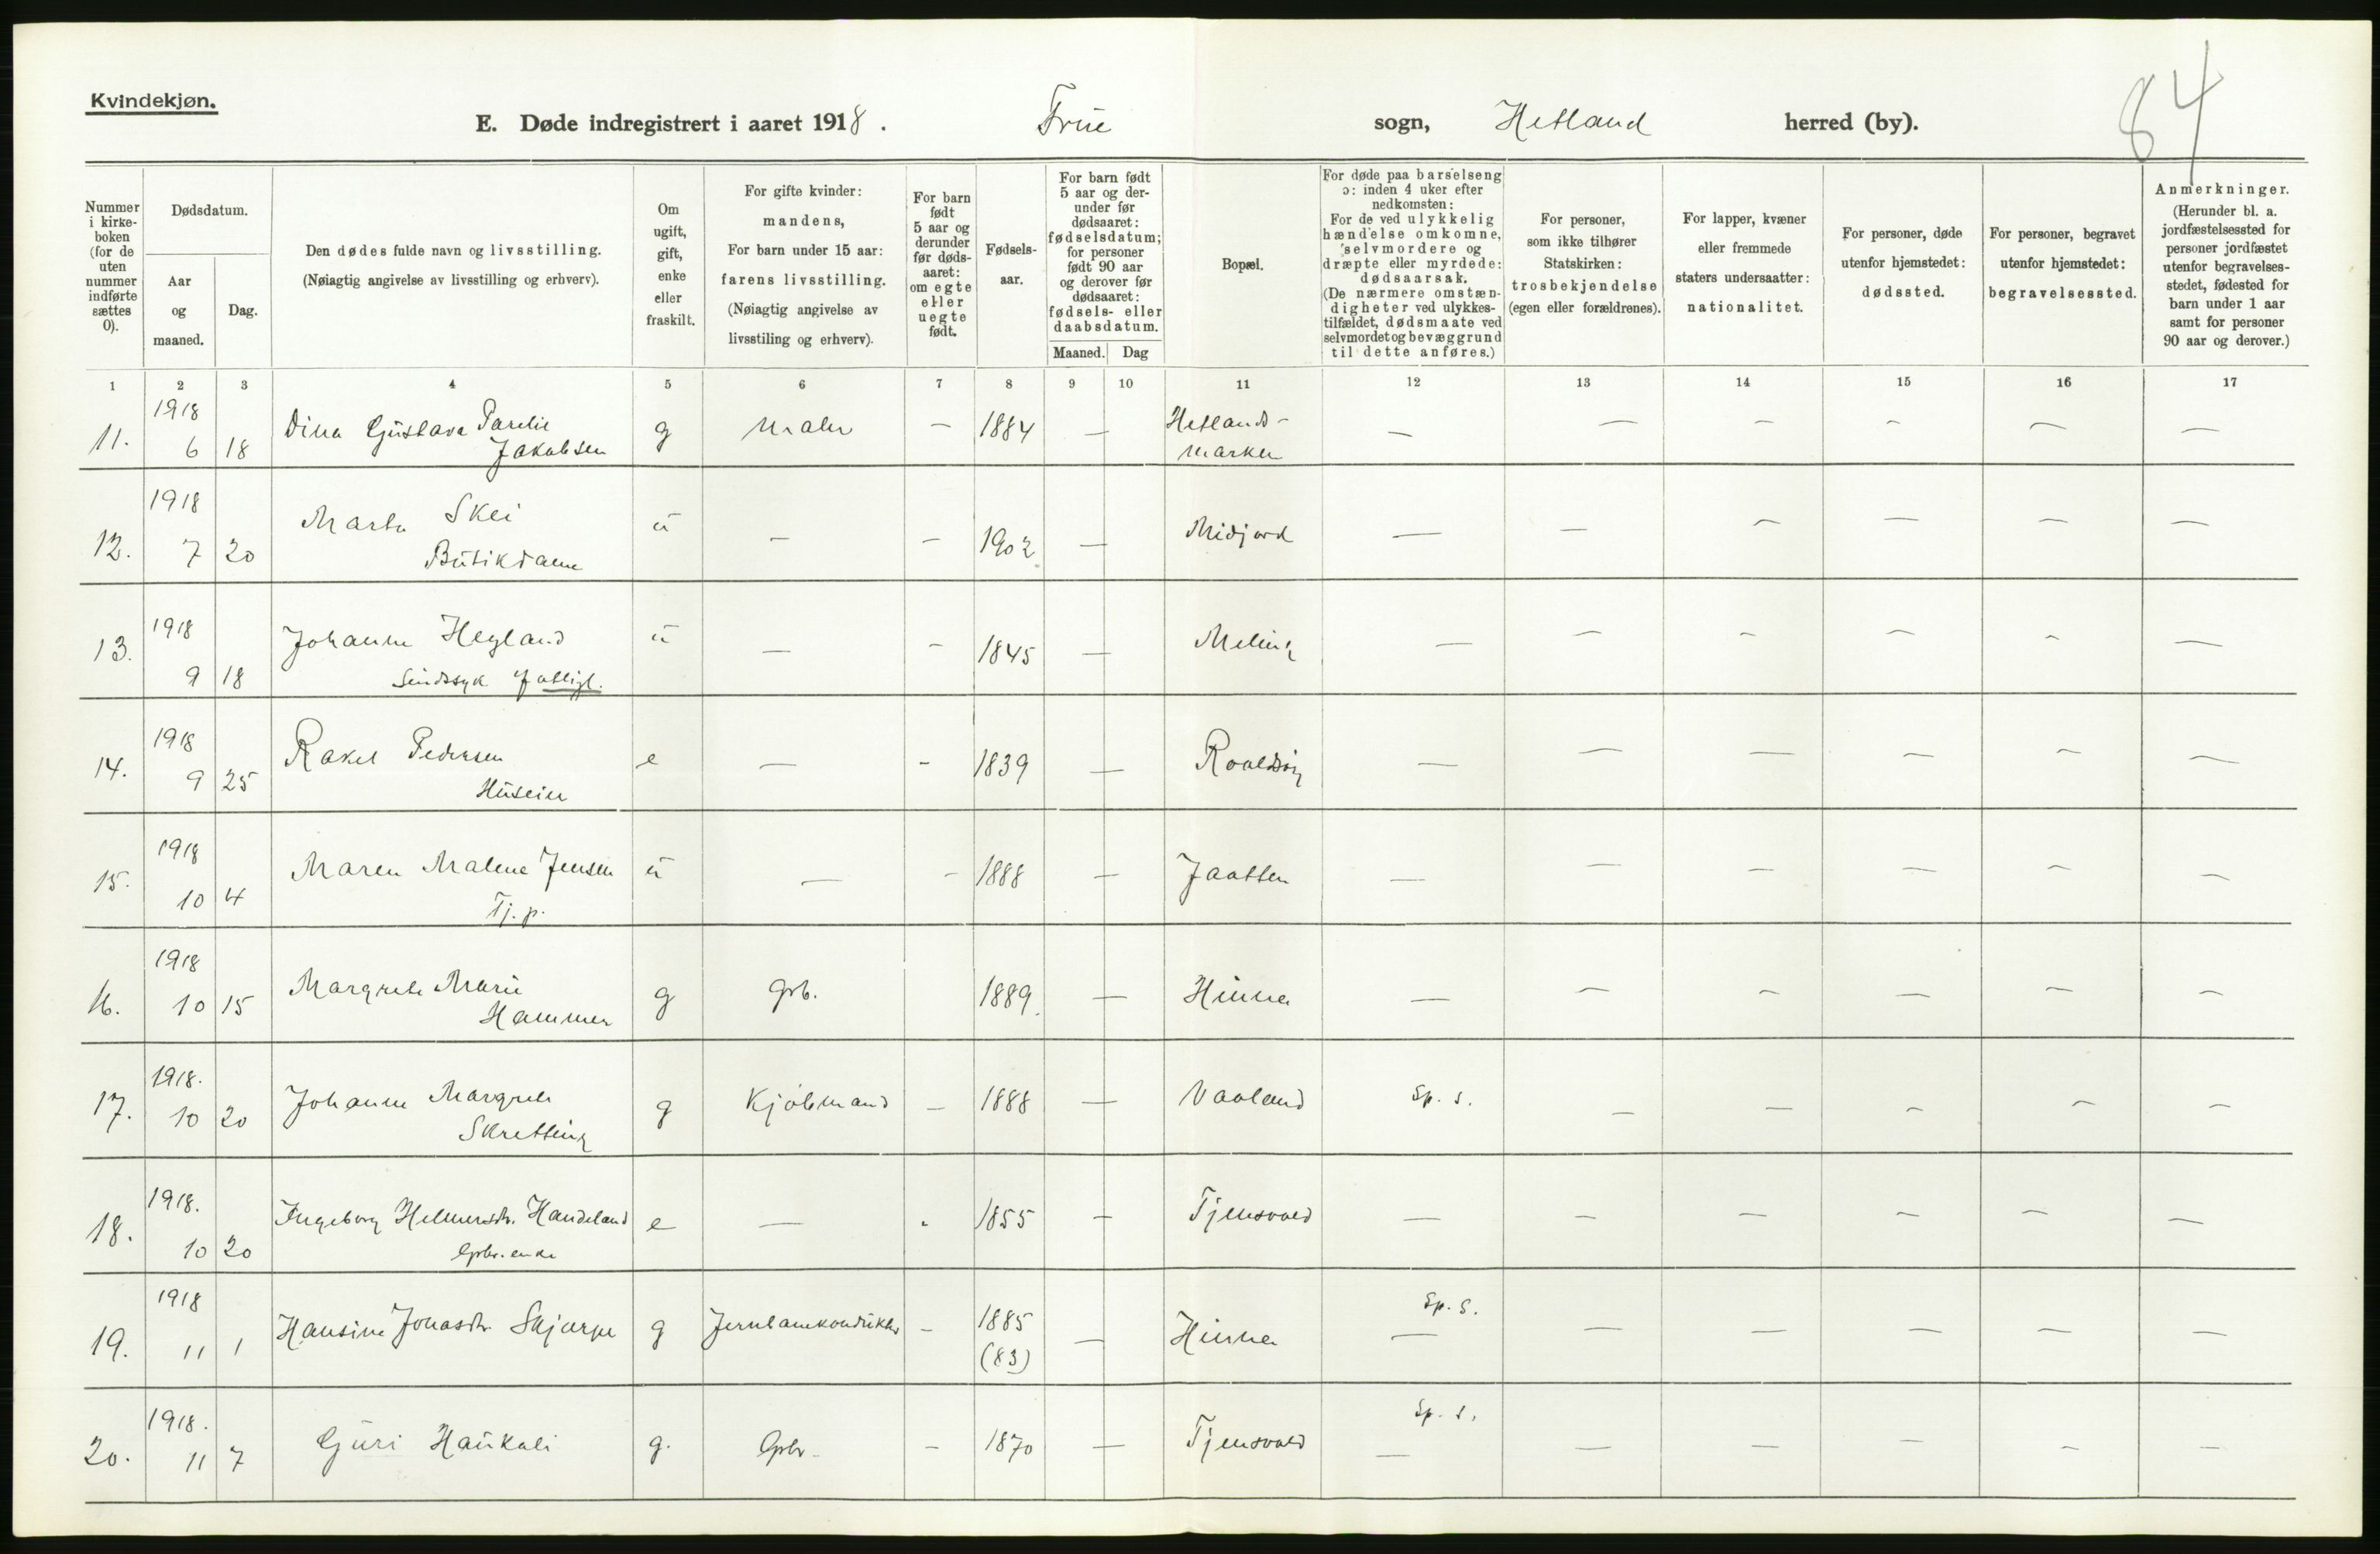 Kvindekjøn.
E. Døde indregistrert i aaret 1918. Frue sogn, Hetland herred (by).
84
Nummer i kirke-boken (for de uten nummer indførte sættes 0).
Dødsdatum.
Aar og maaned.
Dag.
Den dødes fulde navn og livsstilling.
(Nøiagtig angivelse av livsstilling og erhverv).
Om ugift, gift, enke eller fraskilt.
For gifte kvinder: mandens,
For barn under 15 aar: farens livsstilling.
(Nøiagtig angivelse av livsstiling og erhverv).
For barn født 5 aar og derunder før døds-aaret: om egte eller uegte født.
Fødsels-aar.
For barn født 5 aar og der-under før dødsaaret: fødselsdatum; for personer født 90 aar og derover før dødsaaret: fødsels- eller daabsdatum.
Maaned. Dag
Bopæl.
For døde paa barselseng ɔ: inden 4 uker efter nedkomsten:
For de ved ulykkelig hændelse omkomne, selvmordere og dræpte eller myrdede: dødsaarsak.
(De nærmere omstæn-digheter ved ulykkes-tilfældet, dødsmaate ved selvmordet og bevæggrund til dette anføres.)
For personer, som ikke tilhører Statskirken: trosbekjendelse (egen eller forældrenes).
For lapper, kvæner eller fremmede staters undersaatter: nationalitet.
For personer, døde utenfor hjemstedet: dødssted.
For personer, begravet utenfor hjemstedet: begravelsessted.
Anmerkninger.
(Herunder bl. a. jordfæstelsessted for personer jordfæstet utenfor begravelses-stedet, fødested for barn under 1 aar samt for personer 90 aar og derover.)
1 2 3 4 5 6 7 8 9 10 11 12 13 14 15 16 17
11. 1918 6 18 Dina Gustava Jakobsen g Maler — 1884 — Hetlands-marken — — — — — —
12. 1918 7 20 Marta Skei Butikdame u — — 1902 — Midjord — — — — — —
13. 1918 9 18 Johanne Hegland Sindssyk fattigl. u — — 1845 — Meling — — — — — —
14. 1918 9 25 Rakel Pedersen Huseier e — — 1839 — Roaldsøy — — — — — —
15. 1918 10 4 Maren Malene Jensen Tj. p. u — — 1888 — Jaatten — — — — — —
16. 1918 10 15 Margrete Marie Hammer g Grb. 1889. — Hinna — — — — — —
17. 1918. 10 20 Johanne Margrete Skretting g Kjøbmand — 1888 — Vaaland Sp. s. — — — — —
18. 1918. 10 20 Ingeborg Helmersdtr. Handeland Grbr. enke e — - 1855 — Tjensvold — — — — — —
19. 1918 11 1 Hansine Jonasdtr. Skjørpe g Jernbanekonduktør — 1885 (83) — Hinna Sp. s. — — — — — —
20. 1918. 11 7 Guri Haukali g. Grbr. — 1870 — Tjensvold Sp. s. — — — — — —